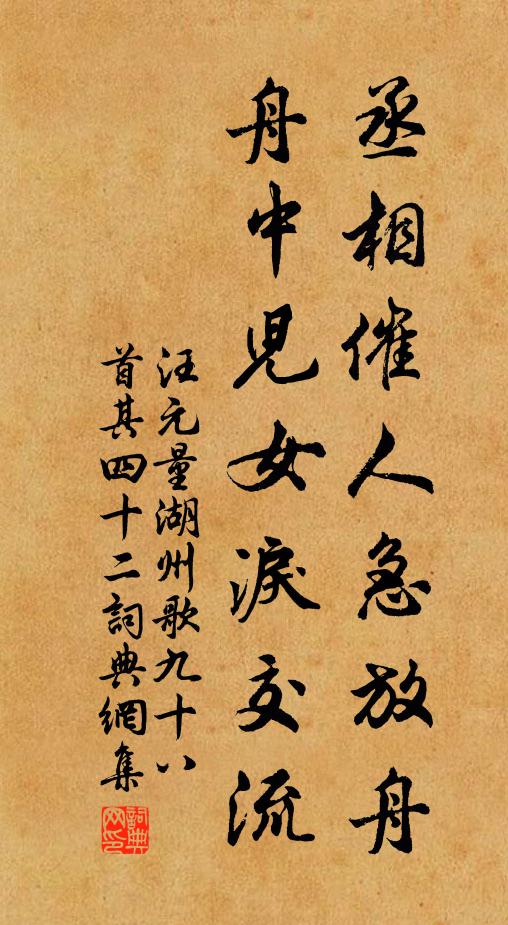 丞相催人急放舟
舟中兒女淚交流
汪元量湖州歌九十八
首其四十二詞典網集
詞典
网印